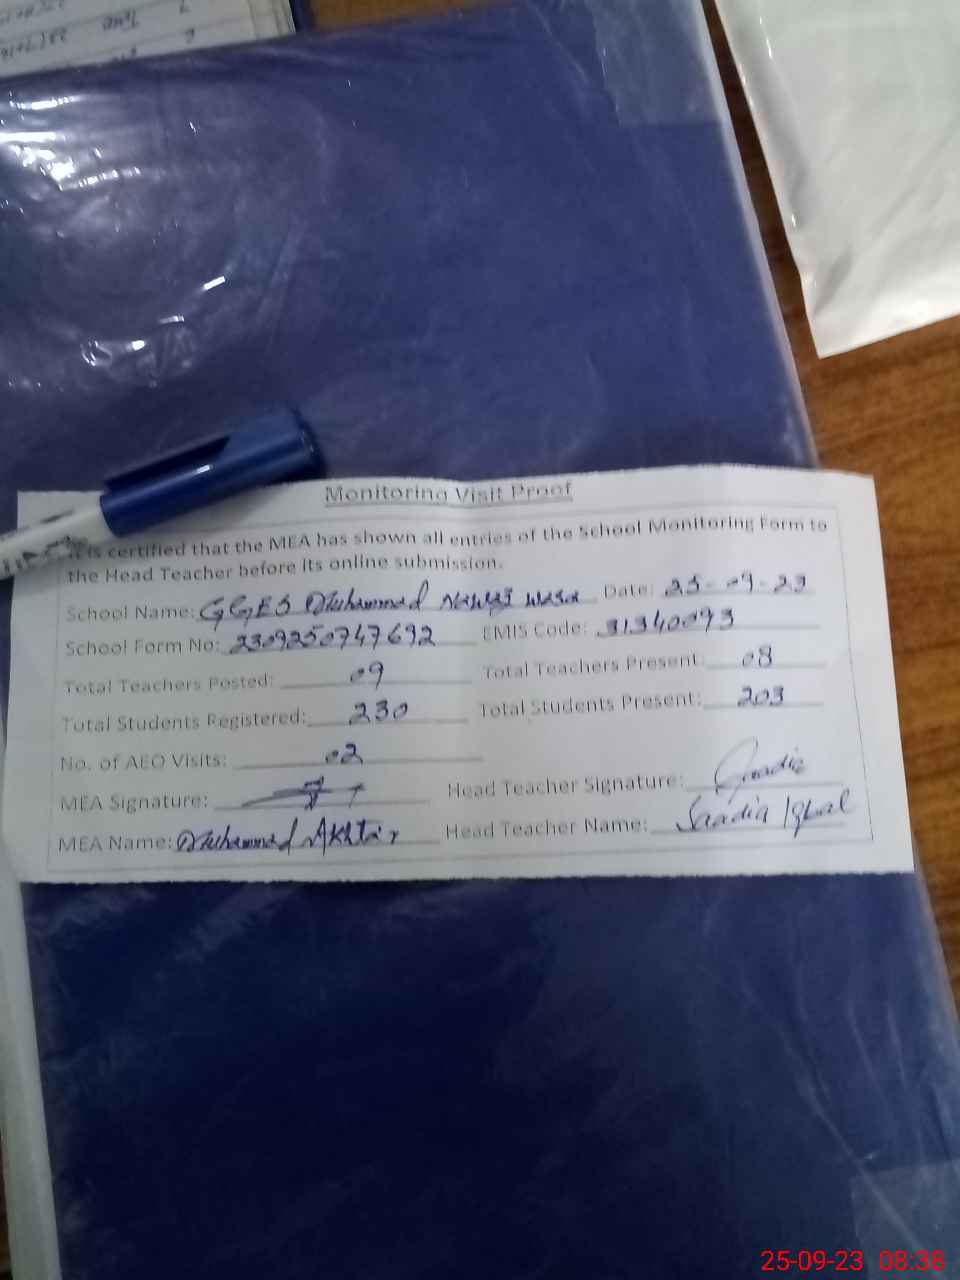 Monitoring Visit Proof
It is certified that the MEA has shown all entries of the School Monitoring Form to
the Head Teacher before its online submission.
School Name: GGES Muhammad Nawaz Wasa Date: 25-09-23
School Form No: 2309250747692 EMIS Code: 31340093
Total Teachers Posted: 09 Total Teachers Present: 08
Total Students Registered: 230 Total Students Present: 203
No. of AEO Visits: 02
MEA Signature: Head Teacher Signature: Saadia
MEA Name: Muhammad Akhtar Head Teacher Name: Saadia Iqbal
25-09-23 08:38